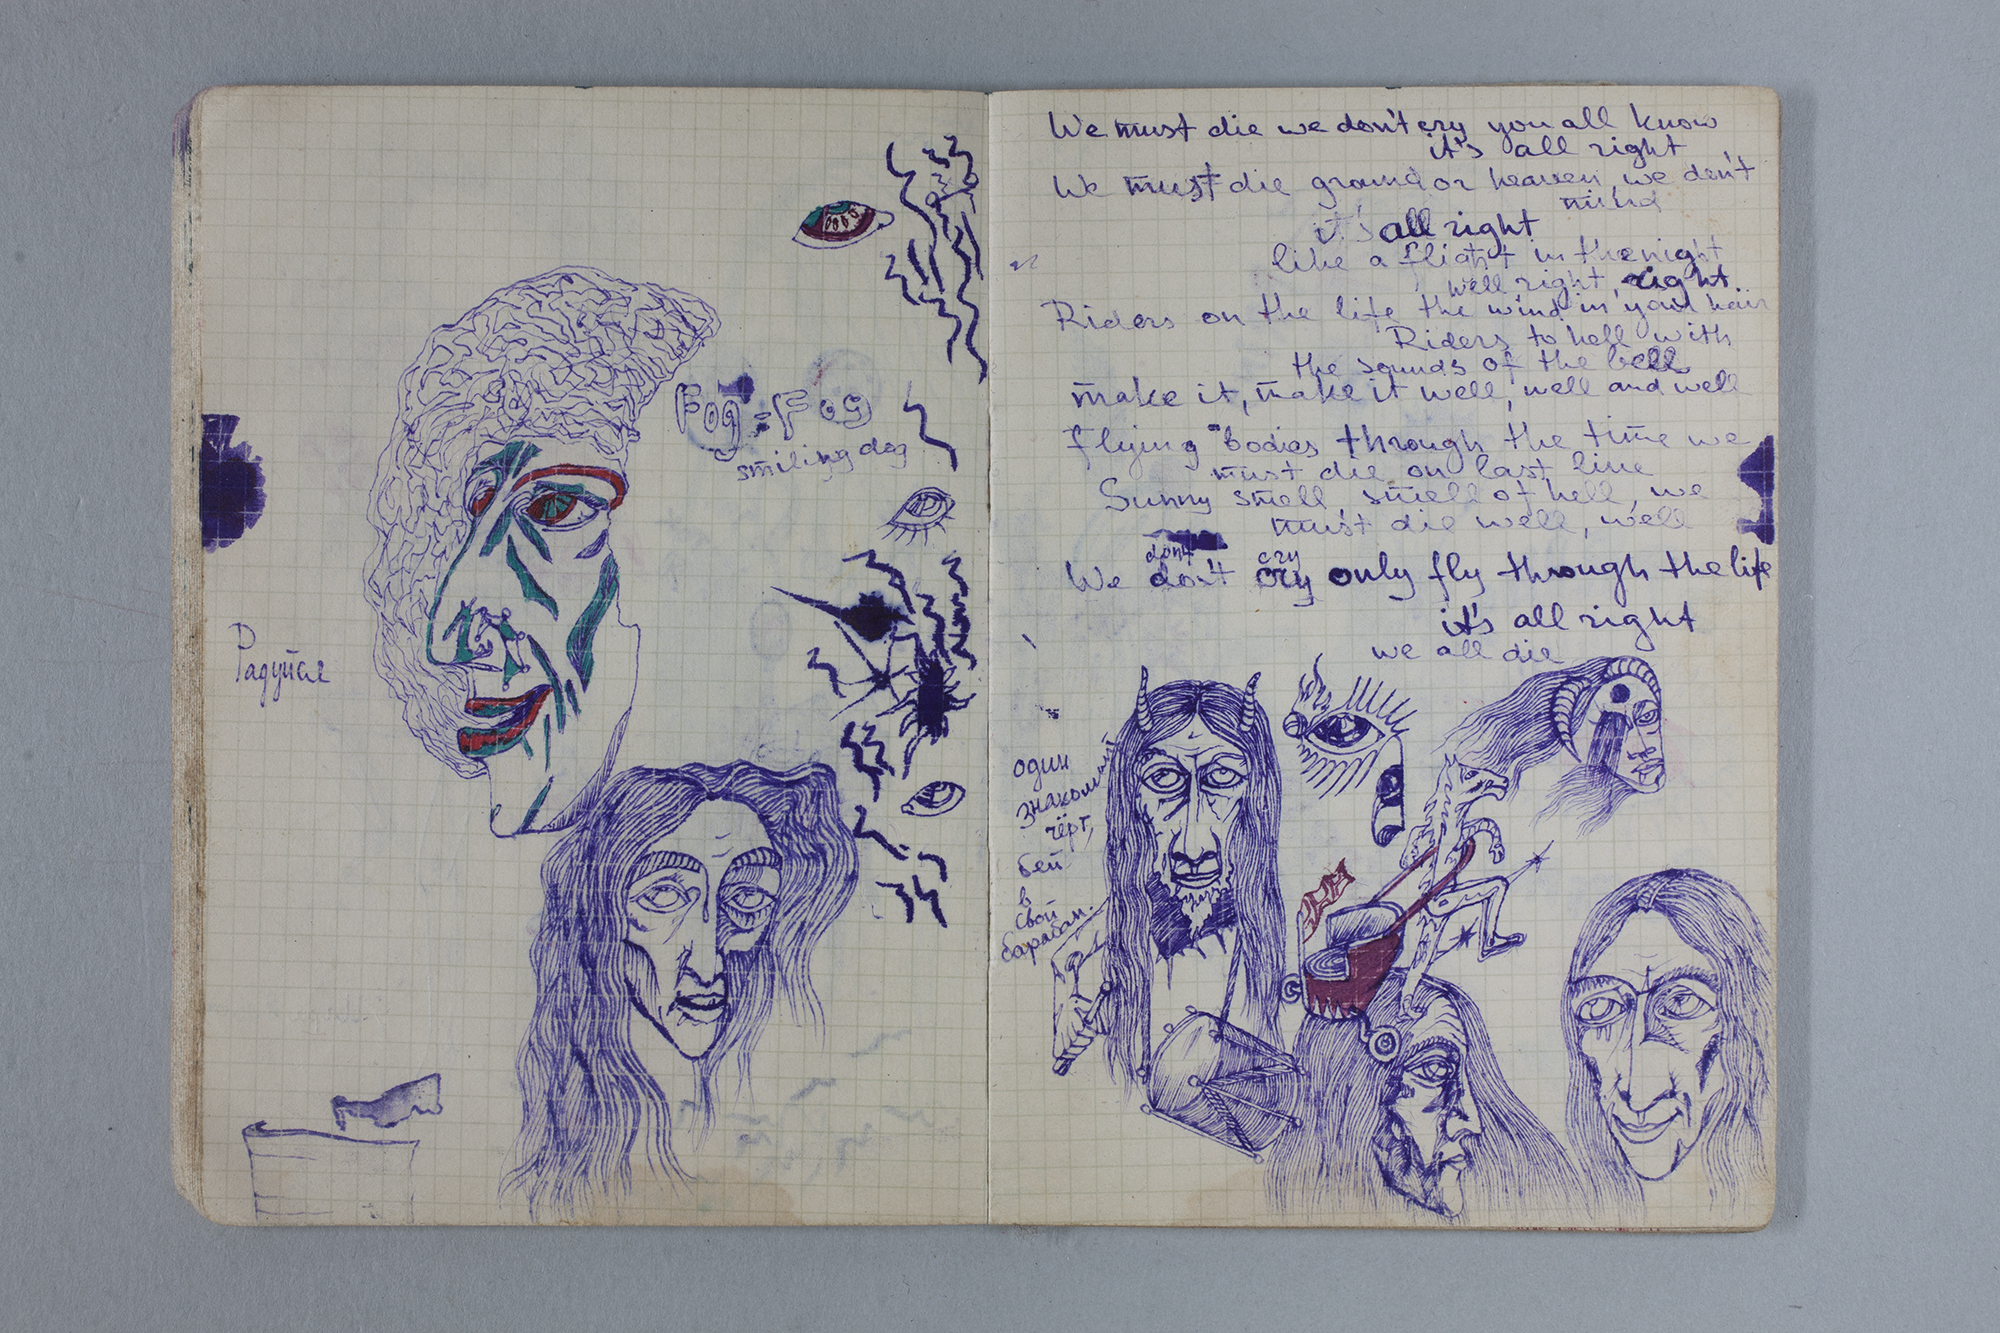 Fog-Fog
smiling dog
Радуйся
We must die we don't cry you all know
it's all right
We must die ground or heaven, we don't
mind
it's all right
like a flight in the night
well right, right
Riders on the life the wind in your hair
Riders to hell with
the sounds of the bell
make it, make it well, well and well
Flying bodies through the time we
must die on last line
Sunny smell smell of hell, we
must die well, well
don't cry
We don't cry only fly through the life
it's all right
we all die
один
знакомый
чёрт,
бей
в
свой
барабан.